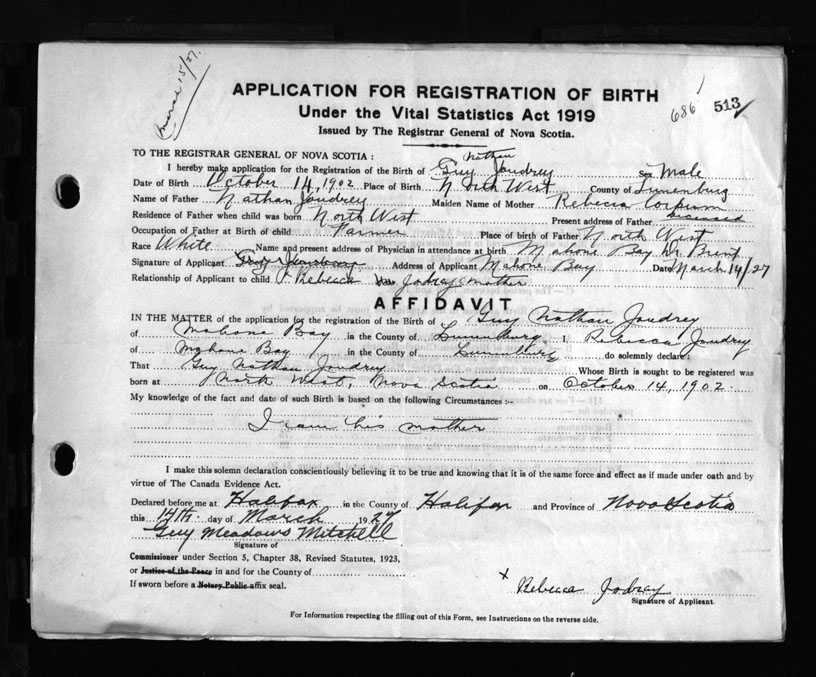 March 15/27.
APPLICATION FOR REGISTRATION OF BIRTH
686 513
Under the Vital Statistics Act 1919
Issued by The Registrar General of Nova Scotia.
TO THE REGISTRAR GENERAL OF NOVA SCOTIA :
Nathan
I hereby make application for the Registration of the Birth of Guy Joudrey Sex Male
Date of Birth October 14, 1902 Place of Birth North West County of Lunenburg
Name of Father Nathan Joudrey Maiden Name of Mother Rebecca
Residence of Father when child was born North West Present address of Father Deceased
Occupation of Father at Birth of child Farmer Place of birth of Father North West
Race White Name and present address of Physician in attendance at birth Mahone Bay Dr
Signature of Applicant Guy Address of Applicant Mahone Bay Date March 14/27
Relationship of Applicant to child Rebecca Jodrey mother
AFFIDAVIT
IN THE MATTER of the application for the registration of the Birth of Guy Nathan Joudrey
of Mahone Bay in the County of Lunenburg I, Rebecca Joudrey
of Mahone Bay in the County of Lunenburg do solemnly declare :
That Guy Nathan Joudrey Whose Birth is sought to be registered was
born at North West, Nova Scotia on October 14, 1902.
My knowledge of the fact and date of such Birth is based on the following Circumstances :--
I am his mother
I make this solemn declaration conscientiously believing it to be true and knowing that it is of the same force and effect as if made under oath and by
virtue of The Canada Evidence Act.
Declared before me at Halifax in the County of Halifax and Province of Nova Scotia
this 14th day of March 1927
Guy Meadows Mitchell
Signature of
Commissioner under Section 5, Chapter 38, Revised Statutes, 1923,
or Justice of the Peace in and for the County of
If sworn before a Notary Public affix seal.
x Rebecca Jodrey
Signature of Applicant.
For Information respecting the filling out of this Form, see Instructions on the reverse side.